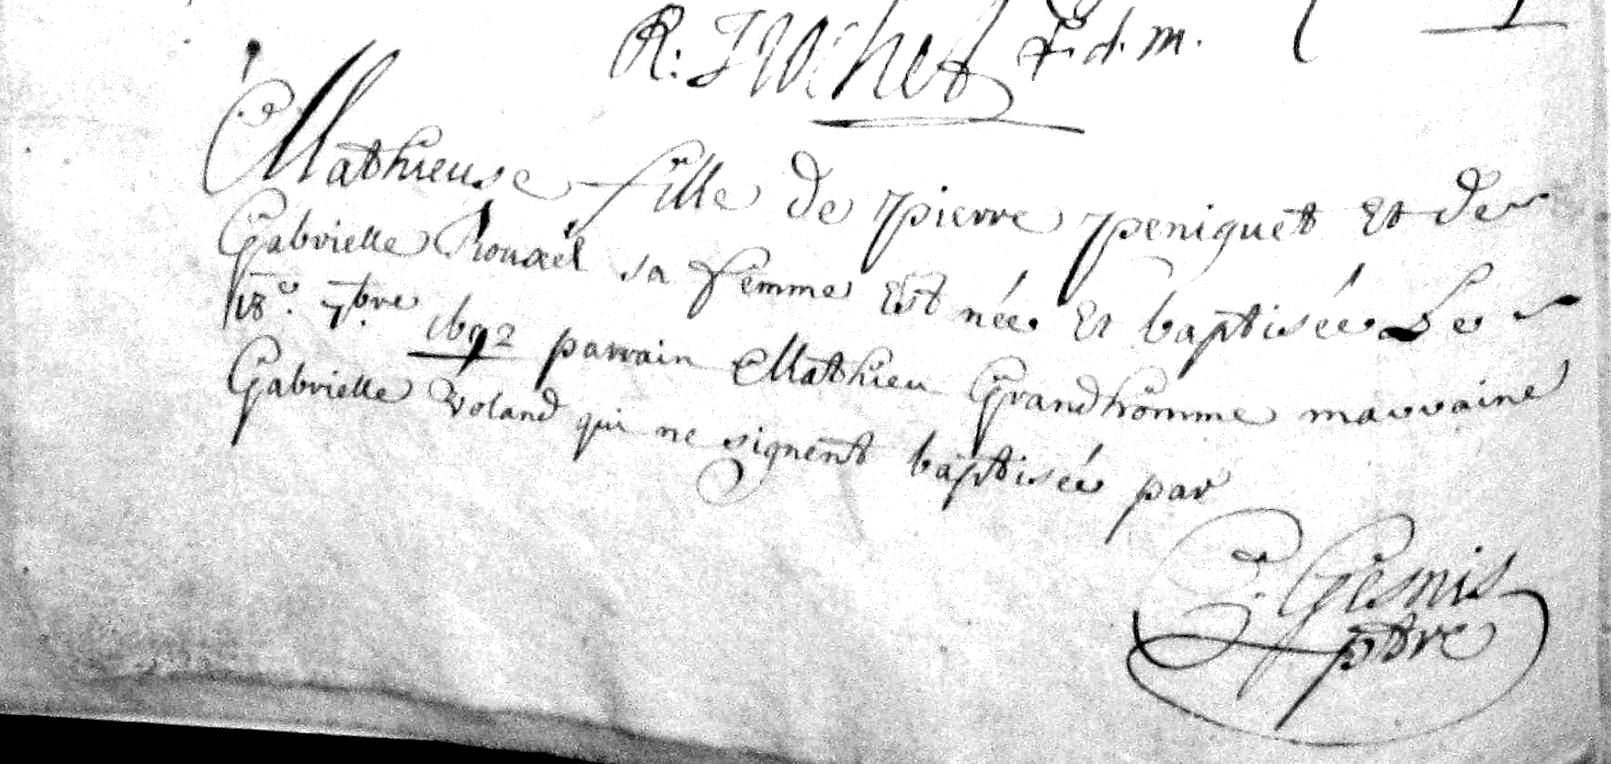 R: Trochet r. d. m.
Mathieuse fille de pierre peniguet Et de
Gabrielle Rouxel sa femme Est née Et baptisée Le
18e. 7.bre 1692 parrain Mathieu Grandhomme marraine
Gabrielle Roland qui ne signent baptisée par
G. Gesmis
ptre